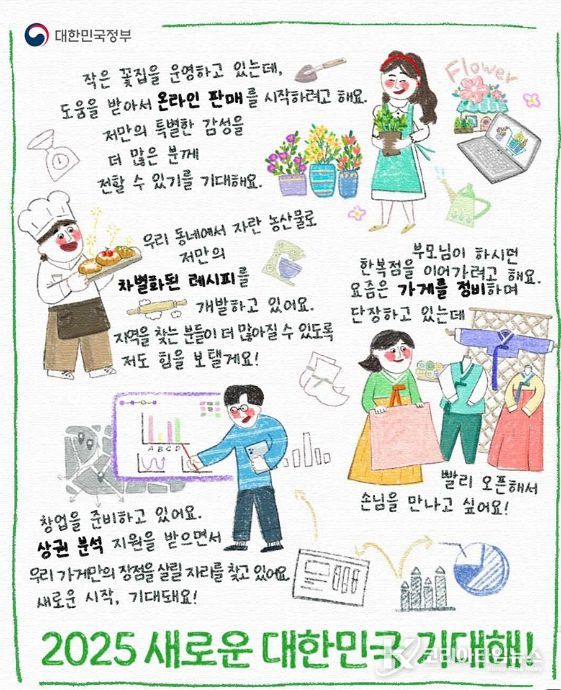 대한민국정부
작은 꽃집을 운영하고 있는데,
도움을 받아서 온라인 판매를 시작하려고 해요.
저만의 특별한 감성을
더 많은 분께
전할 수 있기를 기대해요.
Flower
우리 동네에서 자란 농산물로
저만의
차별화된 레시피를
개발하고 있어요.
지역을 찾는 분들이 더 많아질 수 있도록
저도 힘을 보탤게요!
부모님이 하시던
한복점을 이어가려고 해요.
요즘은 가게를 정비하며
단장하고 있는데
빨리 오픈해서
손님을 만나고 싶어요!
A B C D
창업을 준비하고 있어요.
상권 분석 지원을 받으면서
우리 가게만의 장점을 살릴 자리를 찾고 있어요
새로운 시작, 기대돼요!
2025 새로운 대한민국 기대해!
코리아타운뉴스